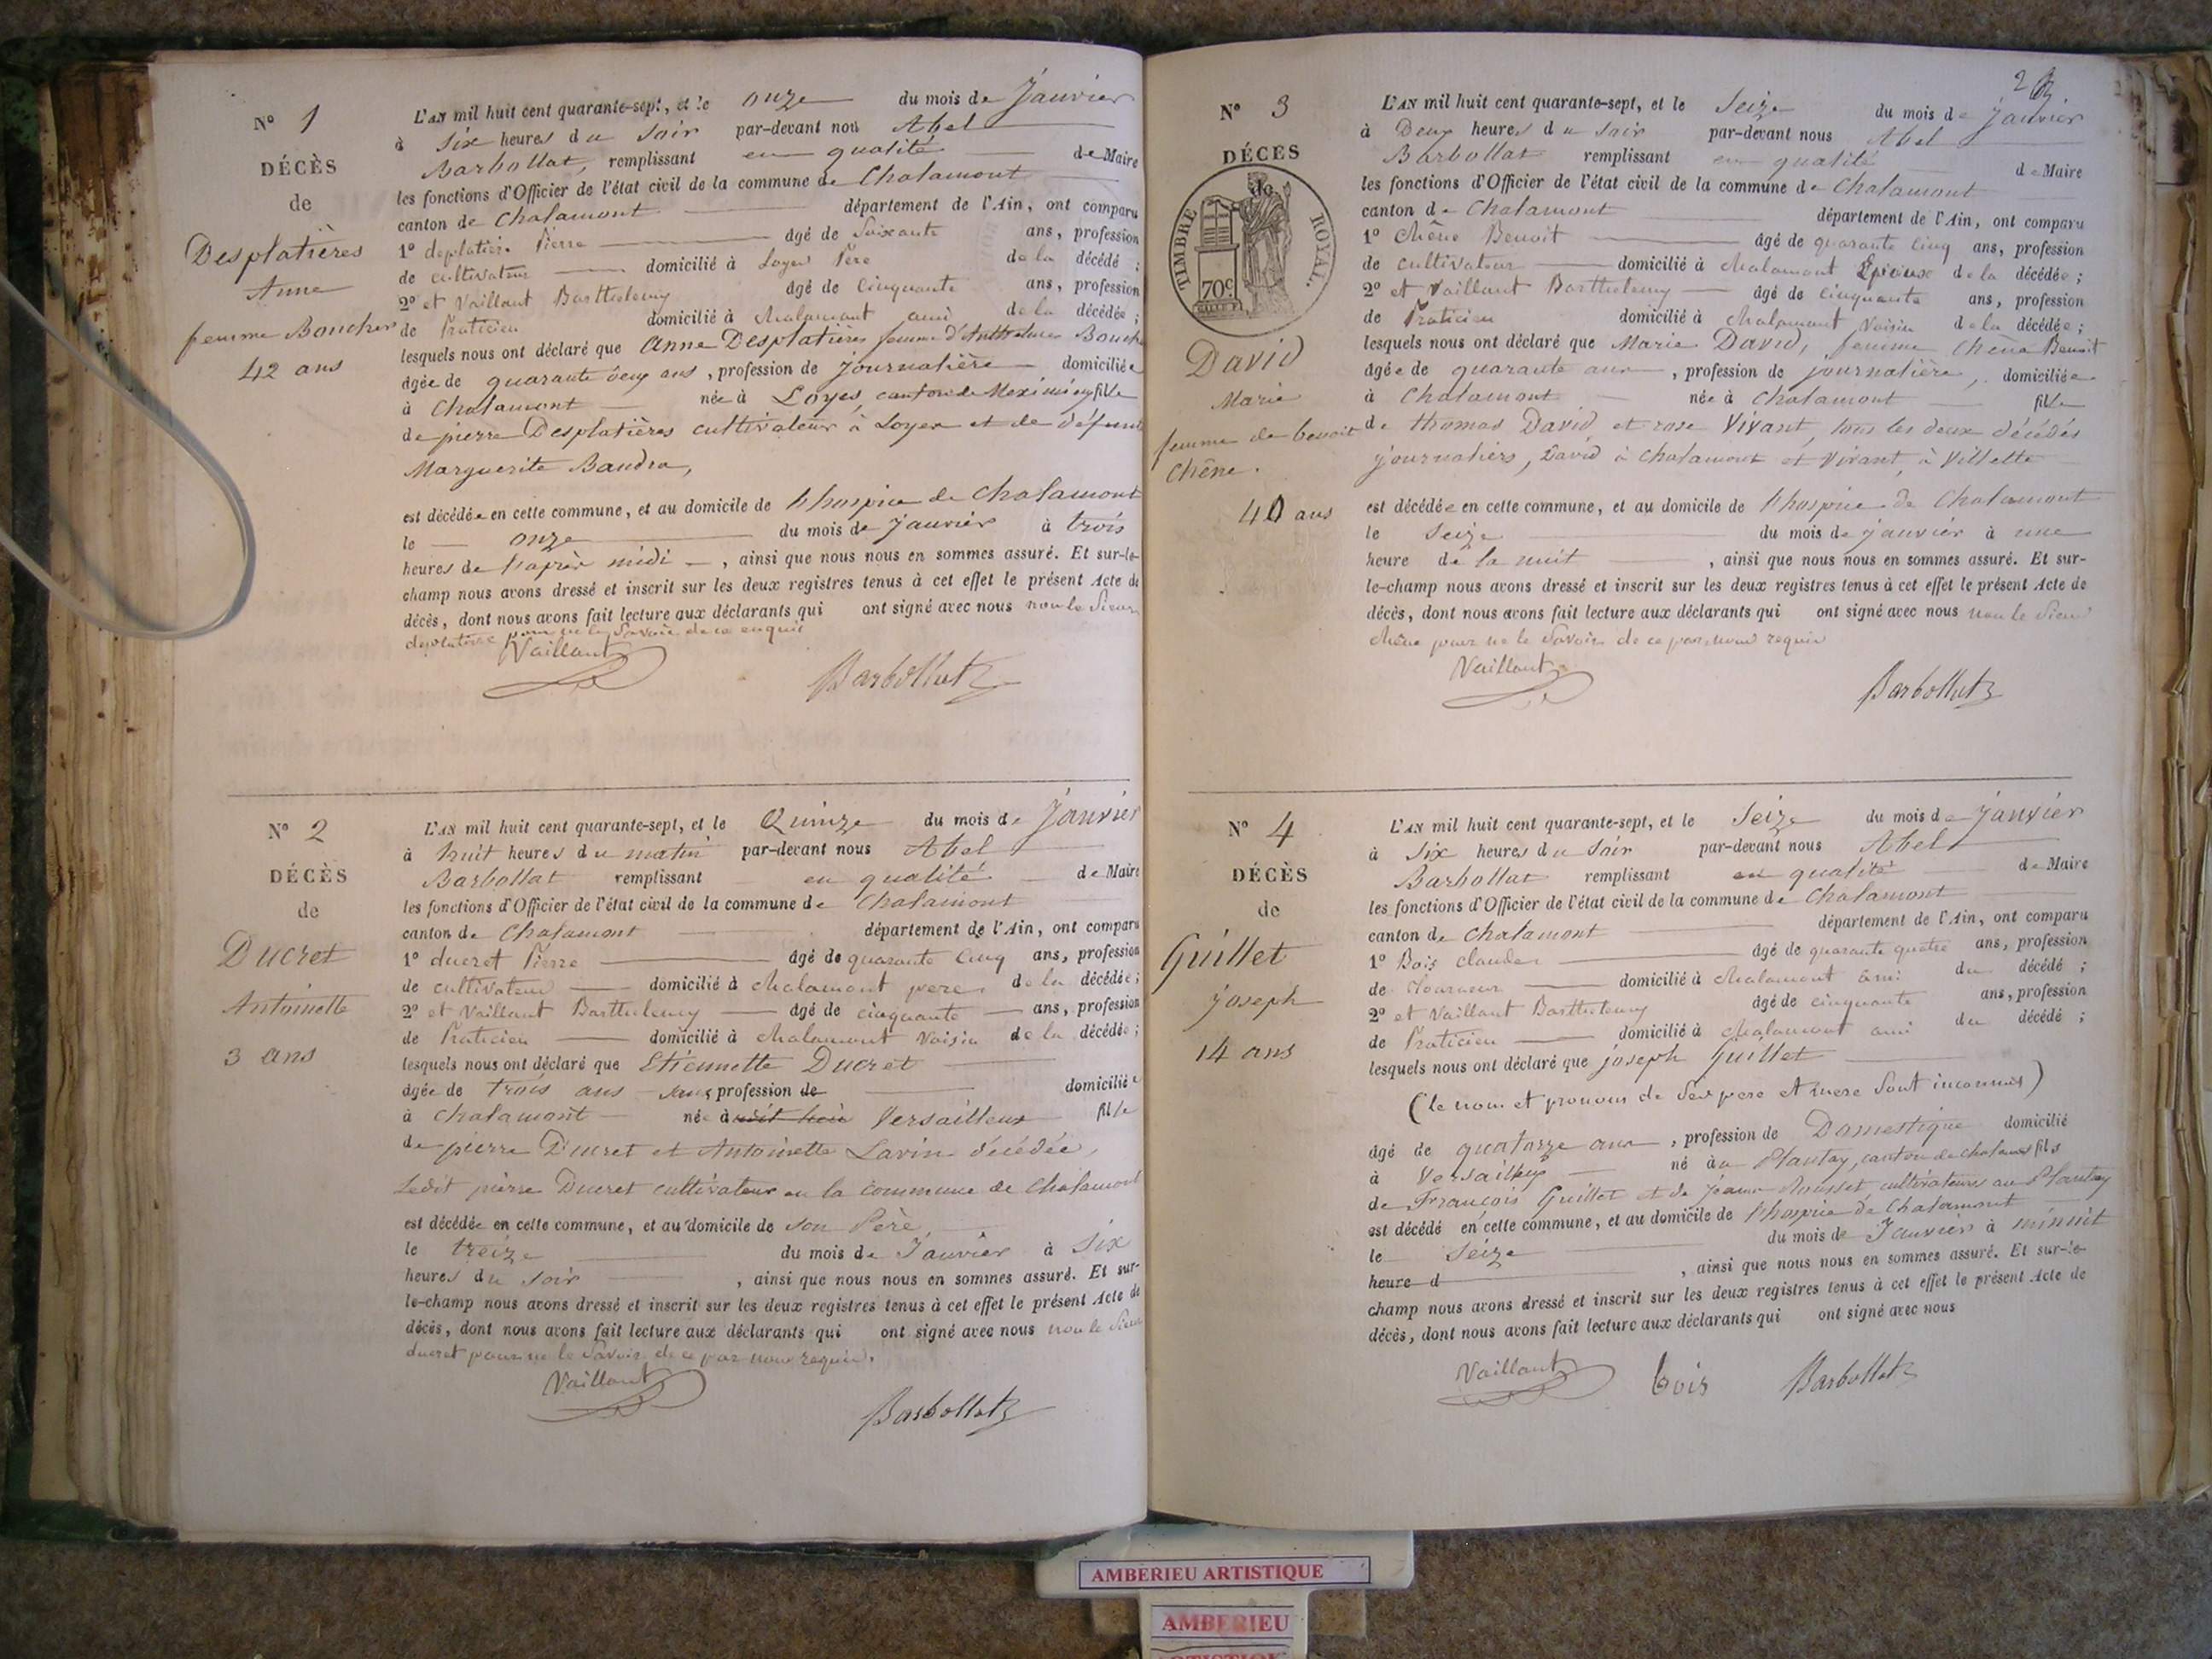 N° 1
DÉCÈS
de
Desplatières
Anne
femme Boucher
42 ans
L'AN mil huit cent quarante-sept, et le onze du mois de Janvier
à Six heures du Soir par-devant nous Abel
Barbollat, remplissant en qualité de Maire
les fonctions d'Officier de l'état civil de la commune de Chalamont
canton de Chalamont département de l'Ain, ont comparu
1° deplatière Pierre âgé de Soixante ans, profession
de cultivateur domicilié à Loyes Père de la décédé ;
2° et Vaillant Barthelemy âgé de Cinquante ans, profession
de Praticien domicilié à Chalamont ami de la décédée ;
lesquels nous ont déclaré que Anne Desplatières femme d'Anthelme Bouche
âgée de quarante deux ans, profession de Journalière domiciliée
à Chalamont née à Loyes, canton de Meximieux fille
de pierre Desplatières cultivateur à Loyes et de défunte
Marguerite Baudra,
est décédée en cette commune, et au domicile de l'hospice de Chalamont
le onze du mois de Janvier à trois
heures de l'après midi, ainsi que nous nous en sommes assuré. Et sur-le-
champ nous avons dressé et inscrit sur les deux registres tenus à cet effet le présent Acte de
décès, dont nous avons fait lecture aux déclarants qui ont signé avec nous non le Sieur
deplatière pour ne le Savoir de ce enquis
Vaillant Barbollat
N° 2
DÉCÈS
de
Ducret
Antoinette
3 ans
L'AN mil huit cent quarante-sept, et le Quinze du mois de Janvier
à huit heures du matin par-devant nous Abel
Barbollat remplissant en qualité de Maire
les fonctions d'Officier de l'état civil de la commune de Chalamont
canton de Chalamont département de l'Ain, ont comparu
1° ducret Pierre âgé de quarante Cinq ans, profession
de cultivateur domicilié à Chalamont pere de la décédée ;
2° et Vaillant Barthelemy âgé de cinquante ans, profession
de Praticien domicilié à Chalamont Voisin de la décédée ;
lesquels nous ont déclaré que Etiennette Ducret
âgée de trois ans sans profession de domicilié
à Chalamont née à Versailleux fille
de pierre Ducret et Antoinette Lavin décédée,
Ledit pierre Ducret cultivateur en la commune de Chalamont
est décédée en cette commune, et au domicile de son Père,
le treize du mois de Janvier à Six
heures du soir, ainsi que nous nous en sommes assuré. Et sur-
le-champ nous avons dressé et inscrit sur les deux registres tenus à cet effet le présent Acte de
décès, dont nous avons fait lecture aux déclarants qui ont signé avec nous non le Sieur
ducret pour ne le Savoir de ce par nous requis.
Vaillant
Barbollat
N° 3
DÉCÈS
de
TIMBRE ROYAL.
70c
David
Marie
femme de benoit
Chêne.
40 ans
L'AN mil huit cent quarante-sept, et le Seize du mois de Janvier
à Deux heures du Soir par-devant nous Abel
Barbollat remplissant en qualité de Maire
les fonctions d'Officier de l'état civil de la commune de Chalamont
canton de Chalamont département de l'Ain, ont comparu
1° Chêne Benoit âgé de quarante Cinq ans, profession
de cultivateur domicilié à Chalamont Epieux de la décédée ;
2° et Vaillant Barthelemy âgé de cinquante ans, profession
de Praticien domicilié à Chalamont Voisin de la décédée ;
lesquels nous ont déclaré que Marie David, femme Chêne Benoit
âgée de quarante ans, profession de journalière, domiciliée
à Chalamont née à Chalamont fille
de thomas David et rose Vivant, tous les deux décédés
journaliers, David à Chalamont et Vivant, à Villette
est décédée en cette commune, et au domicile de l'hospice de Chalamont
le Seize du mois de janvier à une
heure de la nuit, ainsi que nous nous en sommes assuré. Et sur-
le-champ nous avons dressé et inscrit sur les deux registres tenus à cet effet le présent Acte de
décès, dont nous avons fait lecture aux déclarants qui ont signé avec nous non le Sieur
Chêne pour ne le Savoir de ce par nous requis
Vaillant
Barbollat
N° 4
DÉCÈS
de
Guillet
joseph
14 ans
L'AN mil huit cent quarante-sept, et le Seize du mois de Janvier
à Six heures du Soir par-devant nous Abel
Barbollat remplissant en qualité de Maire
les fonctions d'Officier de l'état civil de la commune de Chalamont
canton de Chalamont département de l'Ain, ont comparu
1° Bois Claude âgé de quarante quatre ans, profession
de domicilié à Chalamont ami du décédé ;
2° et Vaillant Barthelemy âgé de cinquante ans, profession
de Praticien domicilié à Chalamont ami du décédé ;
lesquels nous ont déclaré que joseph Guillet
(le nom et prenom de Ses pere et mere Sont inconnus)
âgé de quatorze ans, profession de Domestique domicilié
à Versailleux né au Plantay, canton de chalamont fils
de François Guillet et de Jeanne Rousset cultivateurs au Plantay
est décédé en cette commune, et au domicile de l'hospice de Chalamont
le Seize du mois de Janvier à minuit
heure d, ainsi que nous nous en sommes assuré. Et sur-le-
champ nous avons dressé et inscrit sur les deux registres tenus à cet effet le présent Acte de
décès, dont nous avons fait lecture aux déclarants qui ont signé avec nous
Vaillant bois Barbollat
AMBERIEU ARTISTIQUE
AMBERIEU
ARTISTIQUE